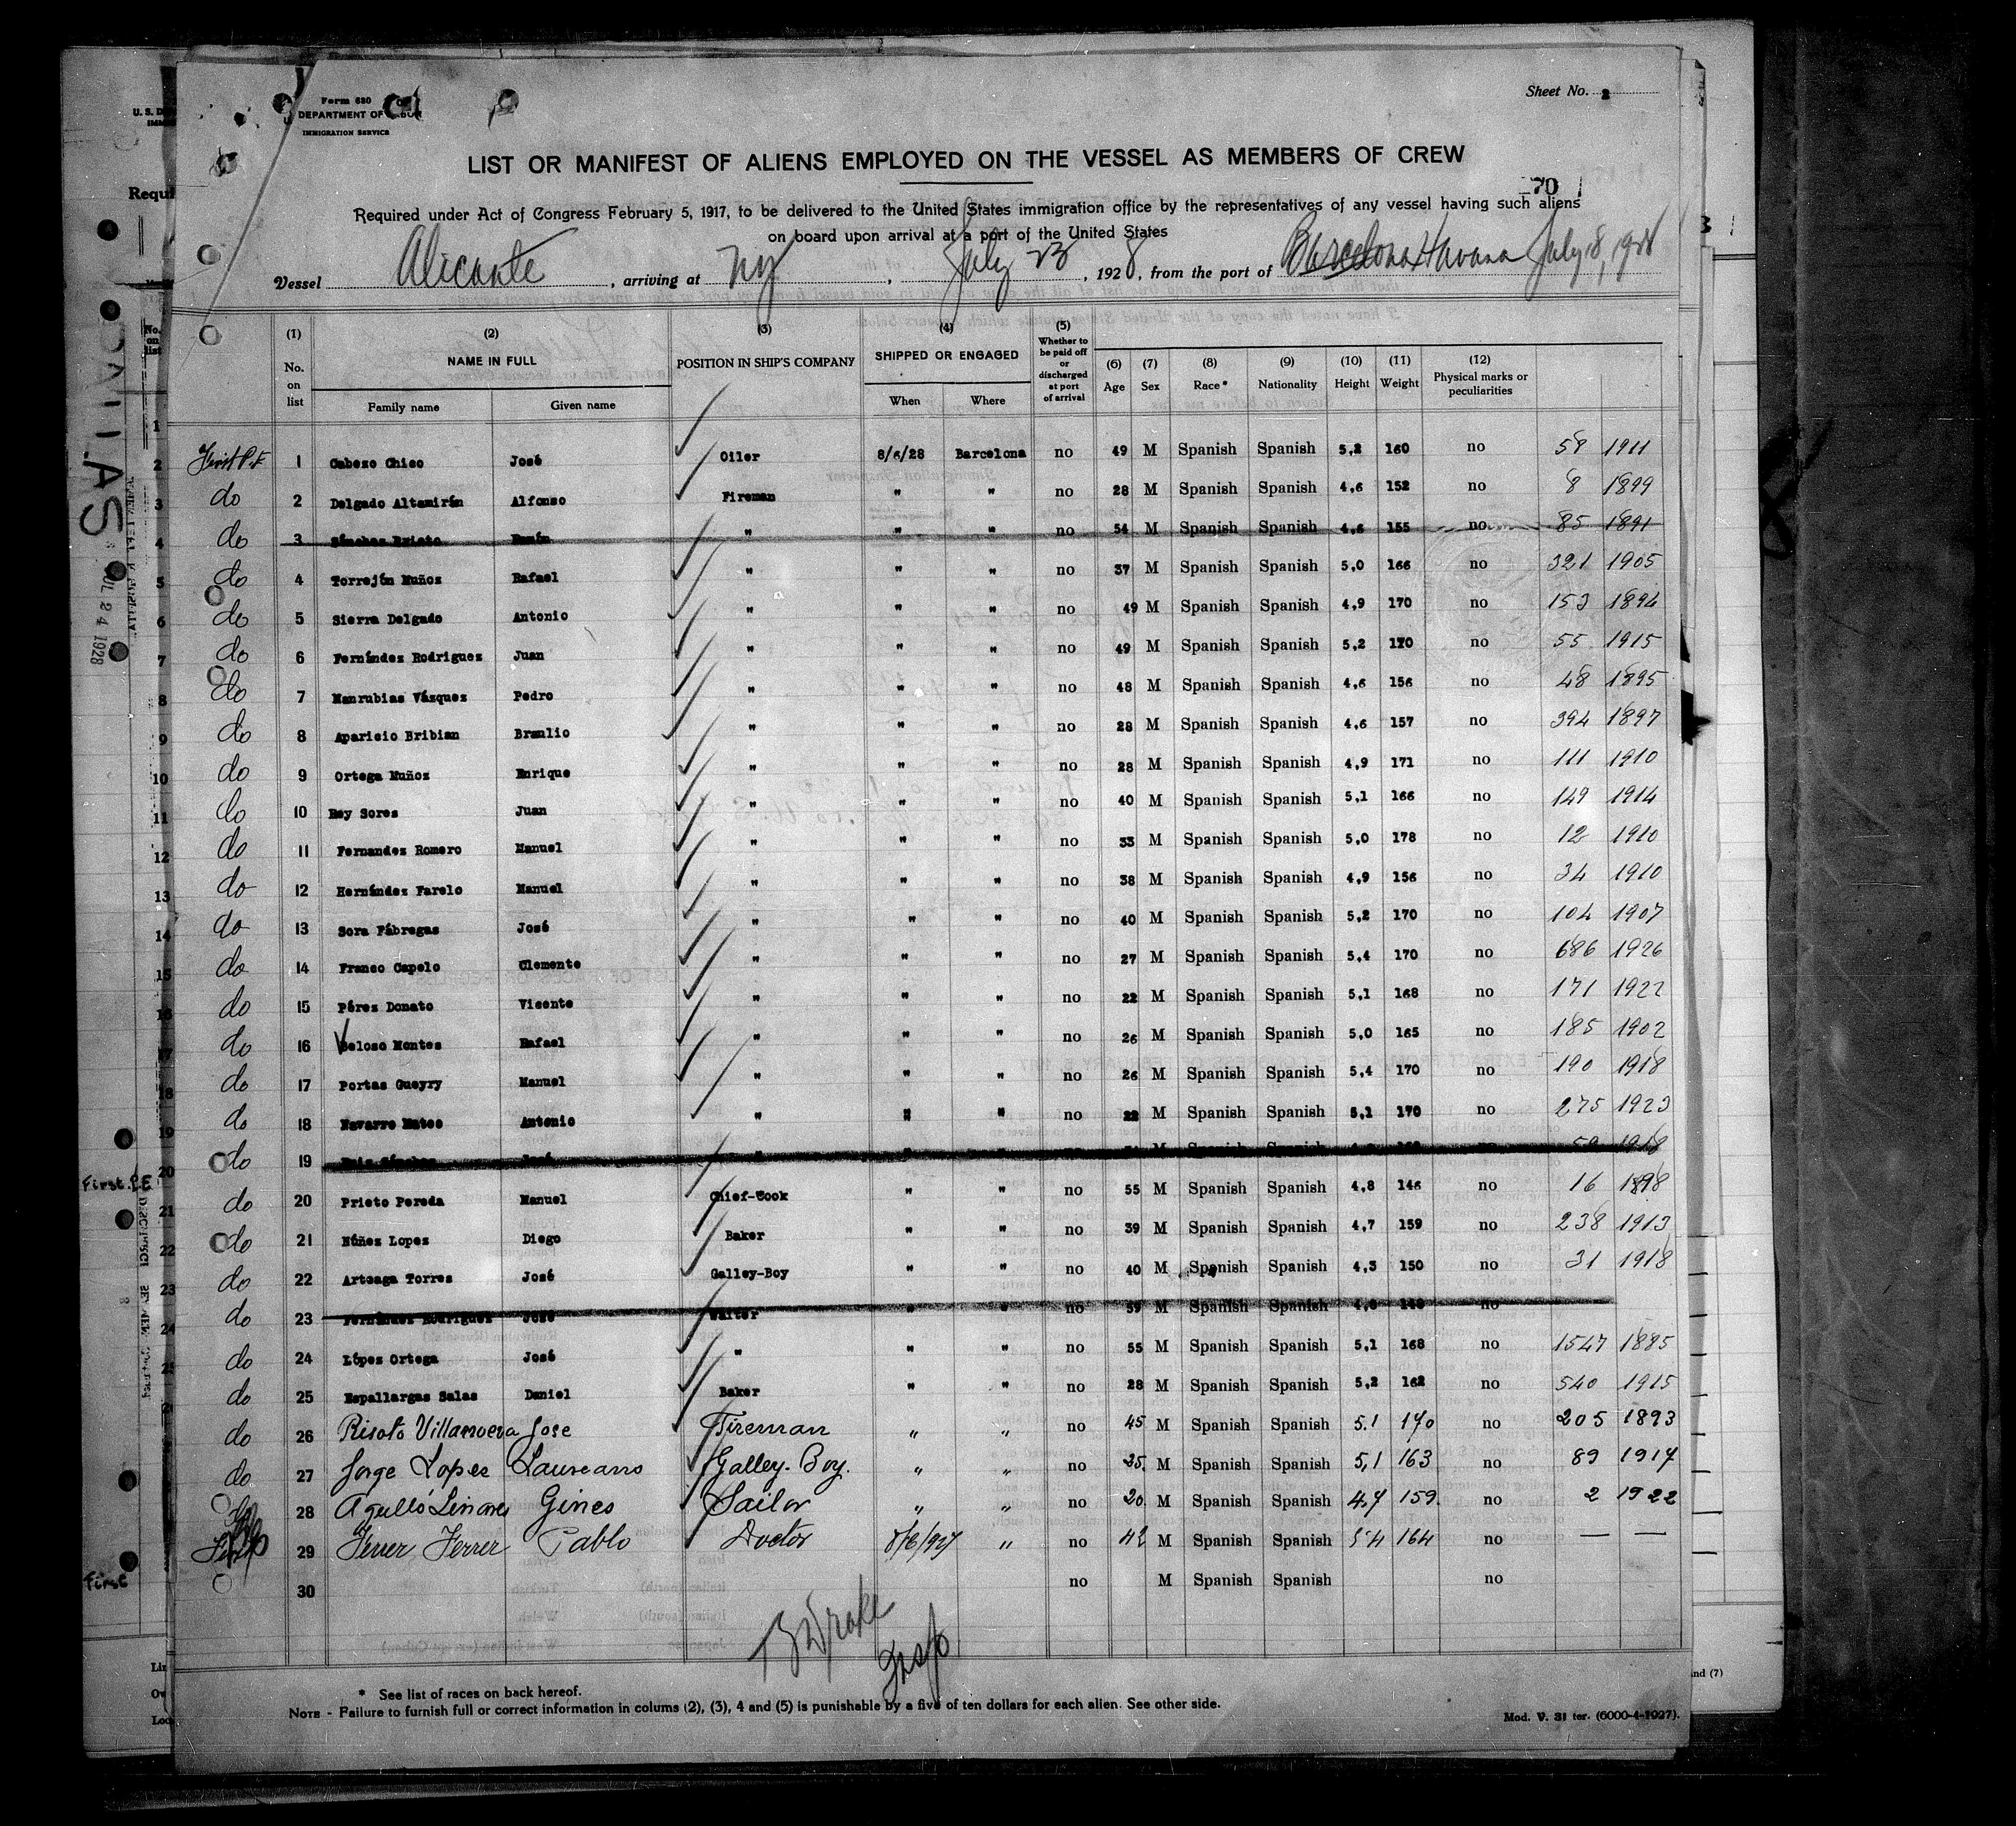 Sheet No. 2
Form 680
DEPARTMENT OF LABOR
IMMIGRATION SERVICE
LIST OR MANIFEST OF ALIENS EMPLOYED ON THE VESSEL AS MEMBERS OF CREW
70
Required under Act of Congress February 5, 1917, to be delivered to the United States immigration office by the representatives of any vessel having such aliens
on board upon arrival at a port of the United States
Vessel Alicante, arriving at NY, July 23, 1928, from the port of Barcelona Havana July 18, 1928
(1) (2) (3) (4) (5)
No. on list NAME IN FULL POSITION IN SHIP'S COMPANY SHIPPED OR ENGAGED Whether to be paid off or discharged at port of arrival (6) Age (7) Sex (8) Race* (9) Nationality (10) Height (11) Weight (12) Physical marks or peculiarities
Family name Given name When Where
1 Cabezo Chico José Oiler 8/6/28 Barcelona no 49 M Spanish Spanish 5,2 160 no 58 1911
do 2 Delgado Altamirán Alfonso Fireman " " no 28 M Spanish Spanish 4,6 152 no 8 1899
do 3 " " " no 54 M Spanish Spanish 4,6 155 no 85 1891
do 4 Torrejón Muñoz Rafael " " " no 37 M Spanish Spanish 5,0 166 no 321 1905
do 5 Sierra Delgado Antonio " " " no 49 M Spanish Spanish 4,9 170 no 153 1894
do 6 Fernández Rodriguez Juan " " " no 49 M Spanish Spanish 5,2 170 no 55 1915
do 7 Manrubias Vázquez Pedro " " " no 48 M Spanish Spanish 4,6 156 no 48 1895
do 8 Aparicio Bribian Braulio " " " no 28 M Spanish Spanish 4,6 157 no 394 1897
do 9 Ortega Muñoz Enrique " " " no 28 M Spanish Spanish 4,9 171 no 111 1910
do 10 Rey Sores Juan " " " no 40 M Spanish Spanish 5,1 166 no 149 1914
do 11 Fernandez Romero Manuel " " " no 33 M Spanish Spanish 5,0 178 no 12 1910
do 12 Hernández Farelo Manuel " " " no 38 M Spanish Spanish 4,9 156 no 34 1910
do 13 Sora Fábregas José " " " no 40 M Spanish Spanish 5,2 170 no 104 1907
do 14 Franco Capelo Clemente " " " no 27 M Spanish Spanish 5,4 170 no 686 1926
do 15 Pérez Donato Vicente " " " no 22 M Spanish Spanish 5,1 168 no 171 1922
do 16 Veloso Montes Rafael " " " no 26 M Spanish Spanish 5,0 165 no 185 1902
do 17 Portas Gueyry Manuel " " " no 26 M Spanish Spanish 5,4 170 no 190 1918
do 18 Navarro Mateo Antonio " " " no 22 M Spanish Spanish 5,1 170 no 275 1923
do 19 José 1918
do 20 Prieto Pereda Manuel Chief-Cook " " no 55 M Spanish Spanish 4,8 146 no 16 1898
do 21 Núñez Lopez Diego Baker " " no 39 M Spanish Spanish 4,7 159 no 238 1913
do 22 Arteaga Torres José Galley-Boy " " no 40 M Spanish Spanish 4,3 150 no 31 1918
do 23 Fernández Rodriguez José Waiter " " no 59 M Spanish Spanish no
do 24 López Ortega José " " " no 55 M Spanish Spanish 5,1 168 no 1547 1885
do 25 Espallargas Salas Daniel Baker " " no 28 M Spanish Spanish 5,2 162 no 540 1915
do 26 Risoto Villanueva Jose Fireman " " no 45 M Spanish Spanish 5.1 170 no 205 1893
do 27 Jorge Lopez Laureano Galley-Boy. " " no 25 M Spanish Spanish 5,1 163 no 89 1917
28 Agulló Linares Gines Sailor " " no 20 M Spanish Spanish 4,7 159 no 2 1922
29 Ferrer Ferrer Pablo Doctor 8/6/927 " no 42 M Spanish Spanish 5'4 164 no — —
30 no M Spanish Spanish no
* See list of races on back hereof.
NOTE - Failure to furnish full or correct information in colums (2), (3), 4 and (5) is punishable by a five of ten dollars for each alien. See other side.
Mod. V. 31 ter. (6000-4-1927).